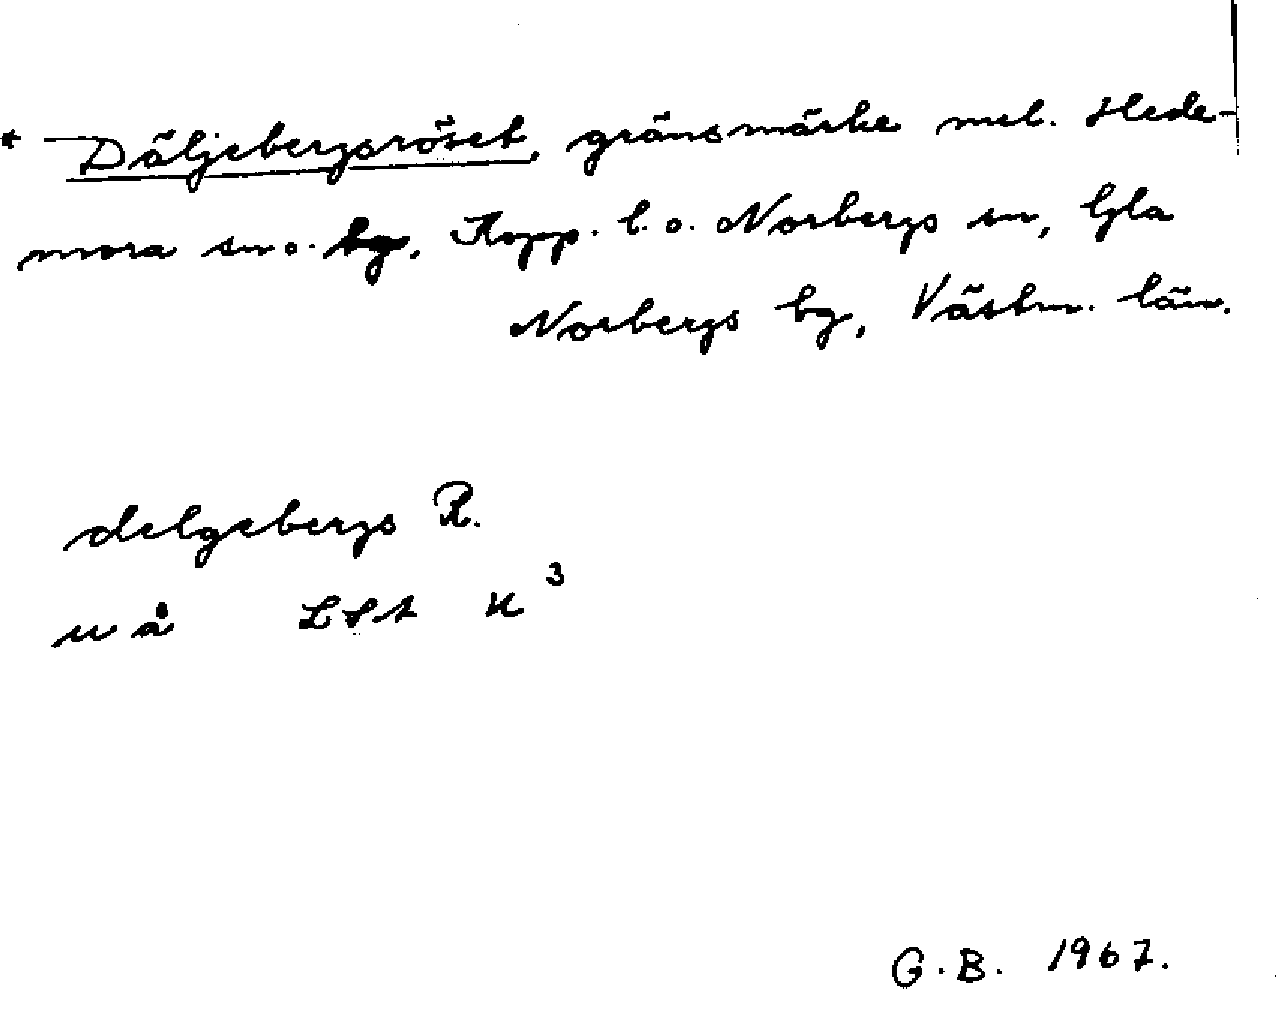 * Däljebergsröset, gränsmärke mel. Hede-
mora sn o. bg, Kopp. l. o. Norbergs sn, Gla
Norbergs bg, Västm. län.
delgebergs R.
u å LSA U³
G.B. 1967.